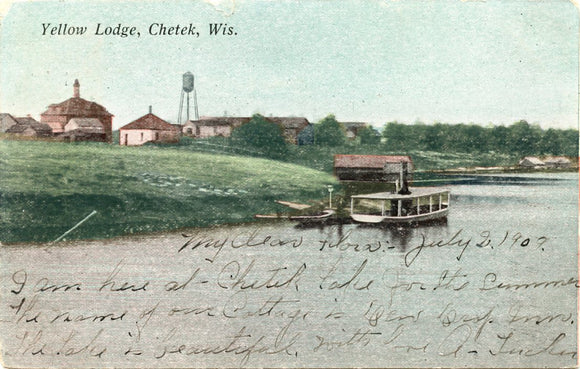 Yellow Lodge, Chetek, Wis.
My Dear Flora:- July 2. 190?
I am here at - Chetek Lake for the Summer
The name of our Cottage is Dew Drop Inn.
The Lake is beautiful. With love A-